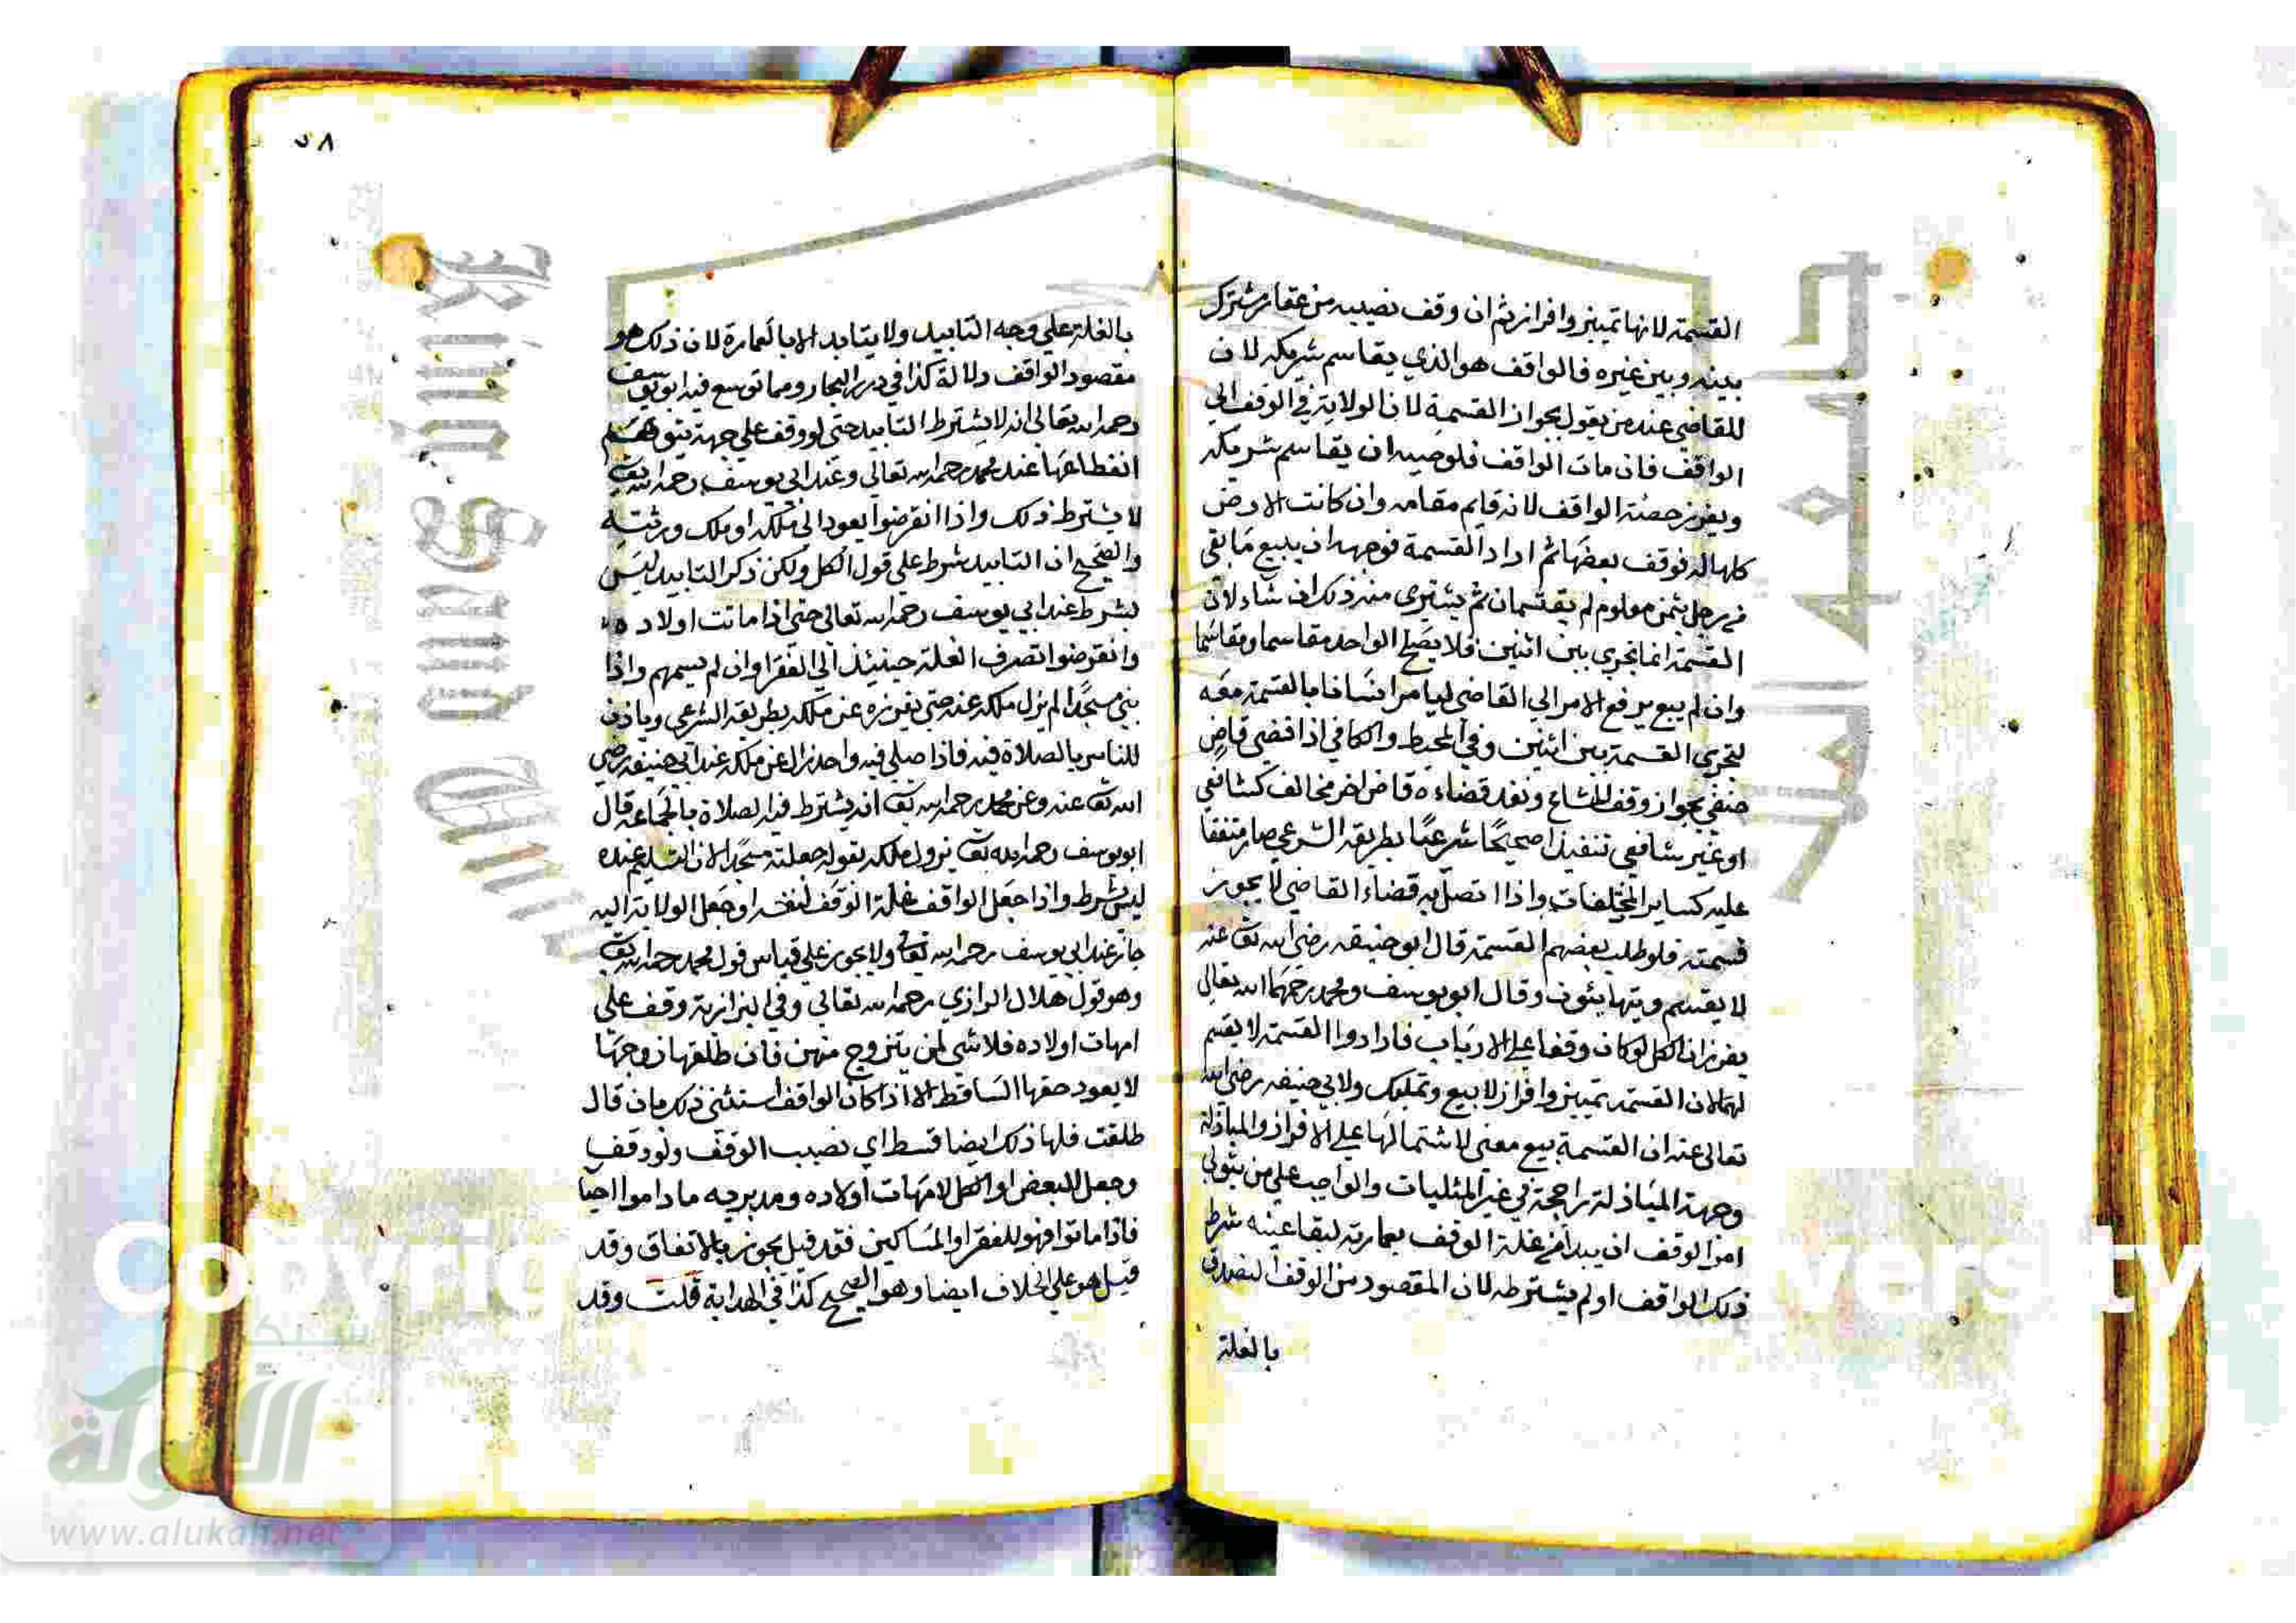 القسمة لانها تمييز وافراز ثم ان وقف نصيبه من عقار مشترك
بينه وبين غيره فالواقف هو الذي يقاسم شريكه لا ن
للقاضي عند من يقول بجواز القسمة لان الولاية في الوقف الي
الواقف فان مات الواقف فلوصيه ان يقاسم شريكه
ويفرز حصة الواقف لانه قايم مقامه وان كانت الارض
كلها له فوقف بعضها ثم اراد القسمة فوجهه ان يبيع ما بقي
من رجل بثمن معلوم لم يقتسمان ثم يشتري منه ذلك ان شاء لان
القسمة انما تجري بين اثنين فلا يصلح الواحد مقاسما ومقاسما
وان لم يبع يرفع الامر الي القاضي ليامر انسانا بالقسمة معه
لتجري القسمة بين اثنين وفي المحيط والكافي اذا قضي قاض
حنفي بجواز وقف المشاع ونفد قضاءه قاض اخر مخالف كشافعي
او غير شافعي تنفيذا صحيحا شرعيا بطريقه الشرعي صار متفقا
عليه كساير المختلفات واذا اتصل به قضاء القاضي لا يجوز
قسمته فلو طلب بعضهم القسمة قال ابو حنيفه رضي الله تعا عنه
لا يقسم ويتهايئون وقال ابو يوسف ومحمد رحمهما الله تعالي
يفرز ان الكل لو كان وقفا علي الارباب فارادوا القسمة لا يقسم
لهما لان القسمة تمييز وافراز لا بيع وتمليك ولابي حنيفه رضي الله
تعالى عنه ان القسمة بيع معني لاشتمالها علي الافراز والمباذلة
وجهة المباذلة راجحة في غير المثليات والواجب علي من يتولي
امر الوقف ان يبدا من غلة الوقف بعمارته لبقا عينه شرط
ذلك الواقف او لم يشترطه لان المقصود من الوقف التصدق
بالغلة
٥٨
بالغلة علي وجه التابيد ولا يتابد الا بالعمارة لان ذلك هو
مقصود الواقف دلالة كذا في درر البحار ومما توسع فيه ابو يوسف
رحمه الله تعالى انه لا يشترط التابيد حتي لو وقف علي جهة يتوهم
انقطاعها عند محمد رحمه الله تعالي وعند ابي يوسف رحمه الله تعا
لا يشترط ذلك واذا انقرضوا يعود الى ملكه او ملك ورثته
والصحيح ان التابيد شرط علي قول الكل ولكن ذكر التابيد ليس
بشرط عند ابي يوسف رحمه الله تعالى حتي اذا ماتت اولاده
وانقرضوا تصرف الغلة حينئذ الي الفقرا وان لم يسمهم واذا
بني مسجدا لم يزل ملكه عنه حتي يفرزه عن ملكه بطريقه الشرعي وياذن
للناس بالصلاة فيه فاذا صلي فيه واحد زال عن ملكه عند ابي حنيفه رضي
الله تعا عنه وعن محمد رحمه الله تعا انه يشترط فيه الصلاة بالجماعه قال
ابو يوسف رحمه الله تعا يزول ملكه بقوله جعلته مسجدا لان التسليم عنده
ليس بشرط واذا جعل الواقف غلة الوقف لنفسه او جعل الولاية اليه
جاز عند ابي يوسف رحمه الله تعا ولا يجوز علي قياس قول محمد رحمه الله تعا
وهو قول هلال الرازي رحمه الله تعالي وفي البزازية وقف علي
امهات اولاده فلا شي لمن يتزوج منهن فان طلقها زوجها
لا يعود حقها الساقط الا اذا كان الواقف استثني ذلك بان قال
طلقت فلها ذلك ايضا قسط اي نصيب الوقف ولو وقف
وجعل البعض او الكل لامهات اولاده ومدبريه ما داموا احيا
فاذا ماتوا فهو للفقرا والمساكين فقد قيل يجوز بالاتفاق وقد
قيل هو علي الخلاف ايضا وهو الصحيح كذا في الهداية قلت وقد
King Saud Univ
جامعة الملك
Copyrig
versity
شبكة
الألوكة
www.alukah.net